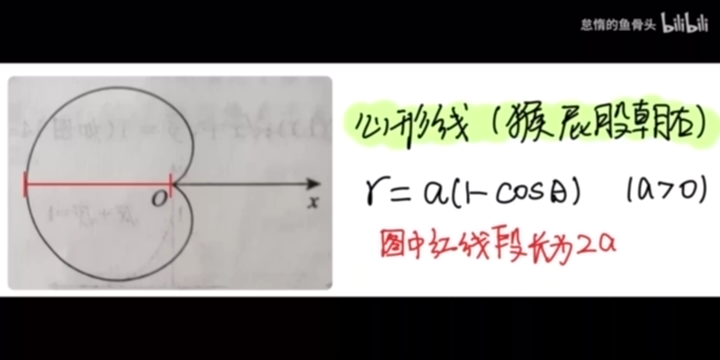 怠惰的鱼骨头 bilibili
心形线（猴屁股朝右）
r = a(1-cosθ) (a>0)
图中红线段长为2a
O
x